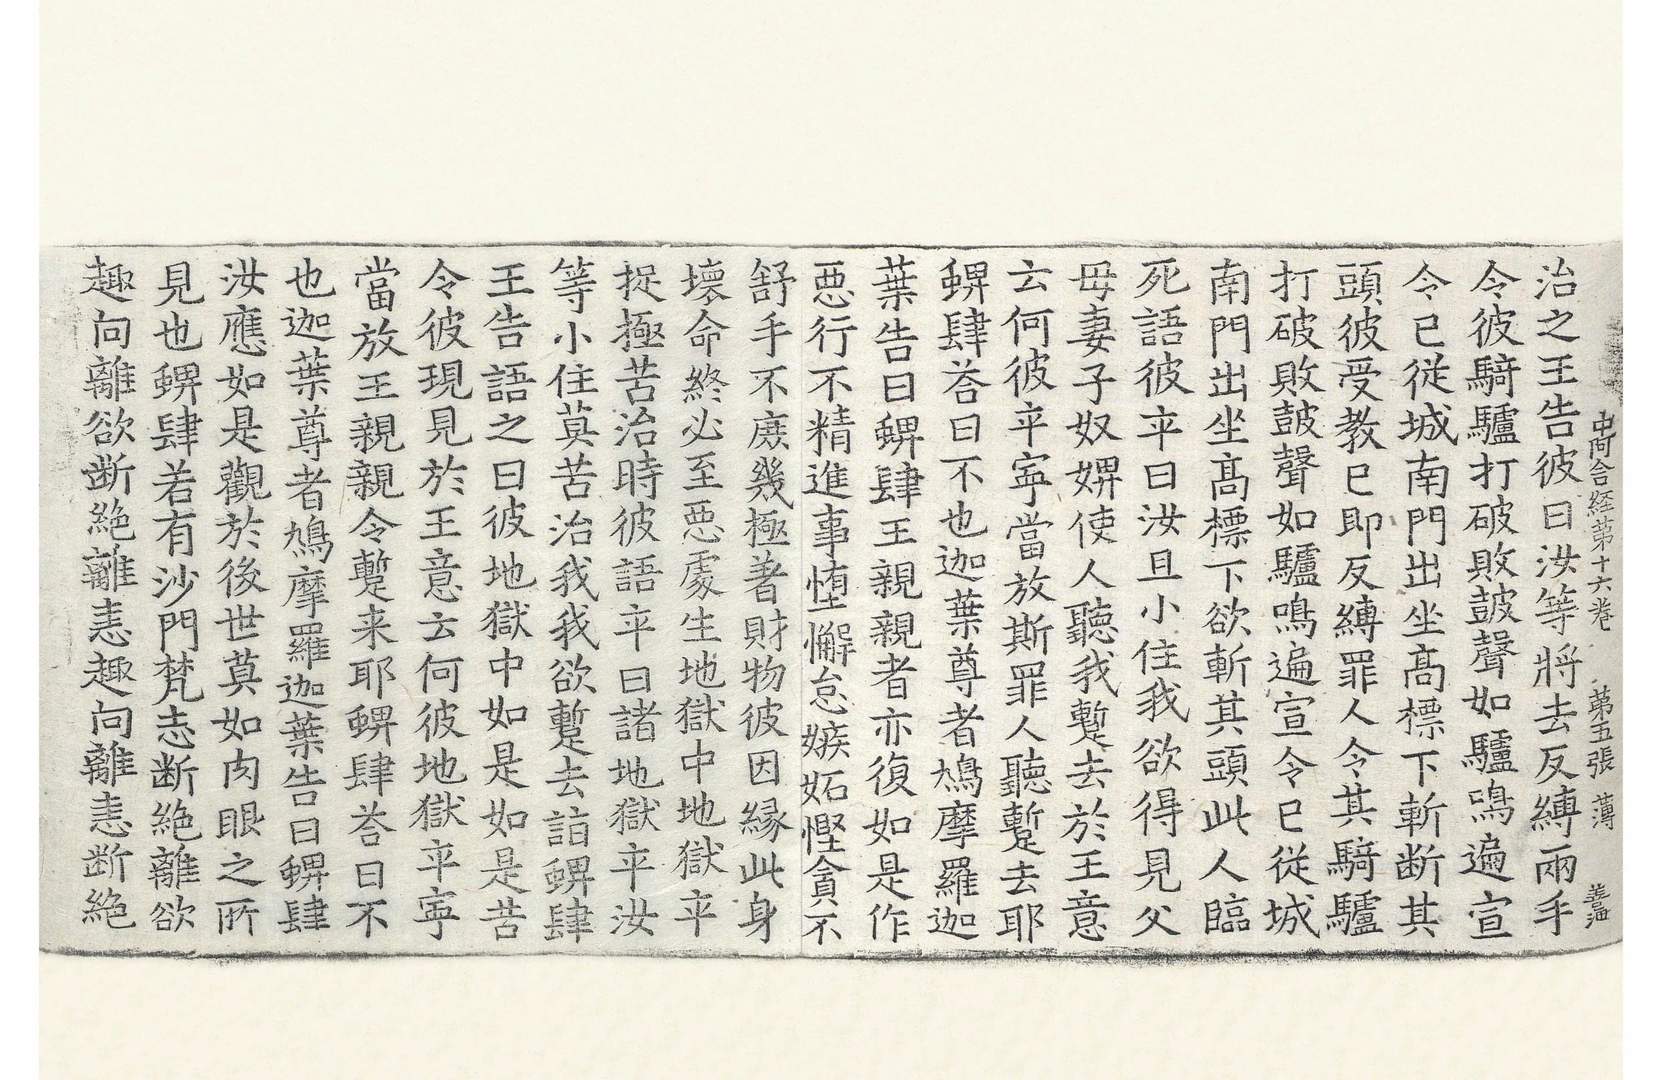 中阿含経第十六卷 第五張 薄
治之王告彼曰汝等將去反縛兩手
令彼騎驢打破敗皷聲如驢鳴遍宣
令已從城南門出坐髙標下斬断其
頭彼受教已即反縛罪人令其騎驢
打破敗皷聲如驢鳴遍宣令已從城
南門出坐髙標下欲斬其頭此人臨
死語彼卒曰汝且小住我欲得見父
母妻子奴婢使人聽我蹔去於王意
云何彼卒寧當放斯罪人聽蹔去耶
蜱肆荅曰不也迦葉尊者鳩摩羅迦
葉告曰蜱肆王親親者亦復如是作
惡行不精進事憜懈怠嫉妬慳貪不
舒手不庶幾極著財物彼因縁此身
壞命終必至惡處生地獄中地獄卒
捉極苦治時彼語卒曰諸地獄卒汝
等小住莫苦治我我欲蹔去詣蜱肆
王告語之曰彼地獄中如是如是苦
令彼現見於王意云何彼地獄卒寧
當放王親親令蹔来耶蜱肆荅曰不
也迦葉尊者鳩摩羅迦葉告曰蜱肆
汝應如是觀於後世莫如肉眼之所
見也蜱肆若有沙門梵志断絶離欲
趣向離欲断絶離恚趣向離恚断絶